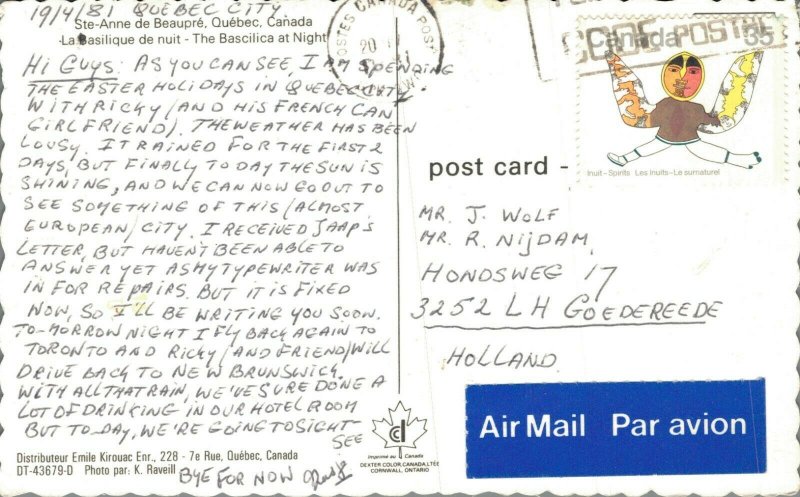 19/4/81 QUEBEC CITY
Ste-Anne de Beaupré, Québec, Canada
La Basilique de nuit - The Bascilica at Night
HI GUYS: AS YOU CAN SEE, I AM SPENDING
THE EASTER HOLIDAYS IN QUEBEC CITY
WITH RICKY (AND HIS FRENCH CAN
GIRLFRIEND). THE WEATHER HAS BEEN
LOUSY. IT RAINED FOR THE FIRST 2
DAYS, BUT FINALLY TO DAY THE SUN IS
SHINING, AND WE CAN NOW GO OUT TO
SEE SOMETHING OF THIS (ALMOST
EUROPEAN) CITY. I RECEIVED JAAP'S
LETTER, BUT HAVEN'T BEEN ABLE TO
ANSWER YET AS MY TYPEWRITER WAS
IN FOR REPAIRS. BUT IT IS FIXED
NOW, SO I'LL BE WRITING YOU SOON.
TO-MORROW NIGHT I FLY BACK AGAIN TO
TORONTO AND RICKY (AND FRIEND) WILL
DRIVE BACK TO NEW BRUNSWICK.
WITH ALL THAT RAIN, WE'VE SURE DONE A
LOT OF DRINKING IN OUR HOTEL ROOM
BUT TO-DAY, WE'RE GOING TO SIGHT-
SEE
Distributeur Emile Kirouac Enr., 228 - 7e Rue, Québec, Canada
DT-43679-D Photo par: K. Raveill
BYE FOR NOW
Imprimé au Canada
DEXTER COLOR CANADA, LTÉE
CORNWALL, ONTARIO
POSTES CANADA POST
20
CODE POSTAL
Canada 35
Inuit-Spirits Les Inuits-Le surnaturel
post card -
MR. J. WOLF
MR. R. NIJDAM,
HONDSWEG 17
3252 LH GOEDEREEDE
HOLLAND
Air Mail Par avion